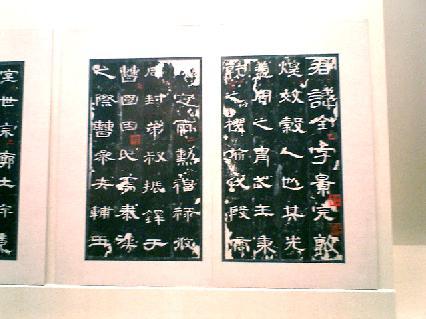 君諱全字景完敦
煌效穀人也其先
蓋周之胄武王秉
乾之機翦伐殷商
既定爾勳福祿攸
同封弟叔振鐸于
曹國因氏焉秦漢
之際曹參夾輔王
室世宗廓土斥竟